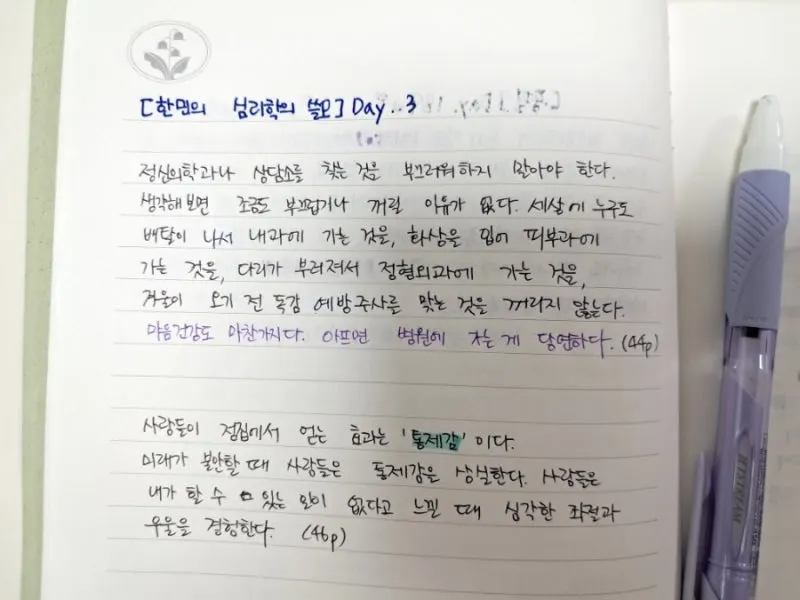 [한민의 심리학의 쓸모] Day..3
정신의학과나 상담소를 찾는 것을 부끄러워하지 말아야 한다.
생각해보면 조금도 부끄럽거나 꺼릴 이유가 없다. 세상에 누구도
배탈이 나서 내과에 가는 것을, 화상을 입어 피부과에
가는 것을, 다리가 부러져서 정형외과에 가는 것을,
겨울이 오기 전 독감 예방주사를 맞는 것을 꺼리지 않는다.
마음건강도 마찬가지다. 아프면 병원에 가는 게 당연하다. (44p)
사람들이 점집에서 얻는 효과는 '통제감' 이다.
미래가 불안할 때 사람들은 통제감을 상실한다. 사람들은
내가 할 수 있는 일이 없다고 느낄 때 심각한 좌절과
우울을 경험한다. (46p)
JETSTREAM